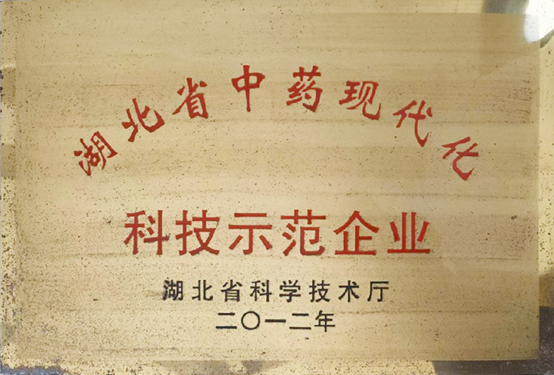 湖北省中药现代化
科技示范企业
湖北省科学技术厅
二〇一二年